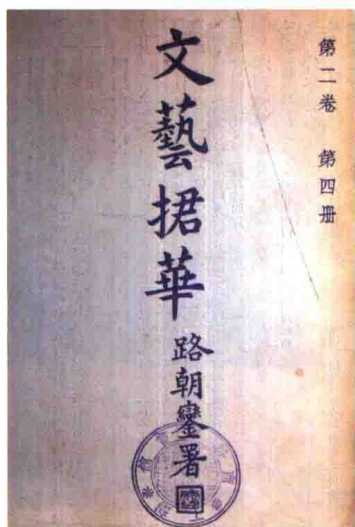 第二卷 第四册
文藝捃華
路朝鑾署